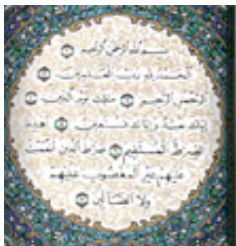 بسم الله الرحمن الرحيم
الحمد لله رب العالمين
الرحمن الرحيم مالك يوم الدين
إياك نعبد وإياك نستعين اهدنا
الصراط المستقيم صراط الذين أنعمت
عليهم غير المغضوب عليهم
ولا الضالين